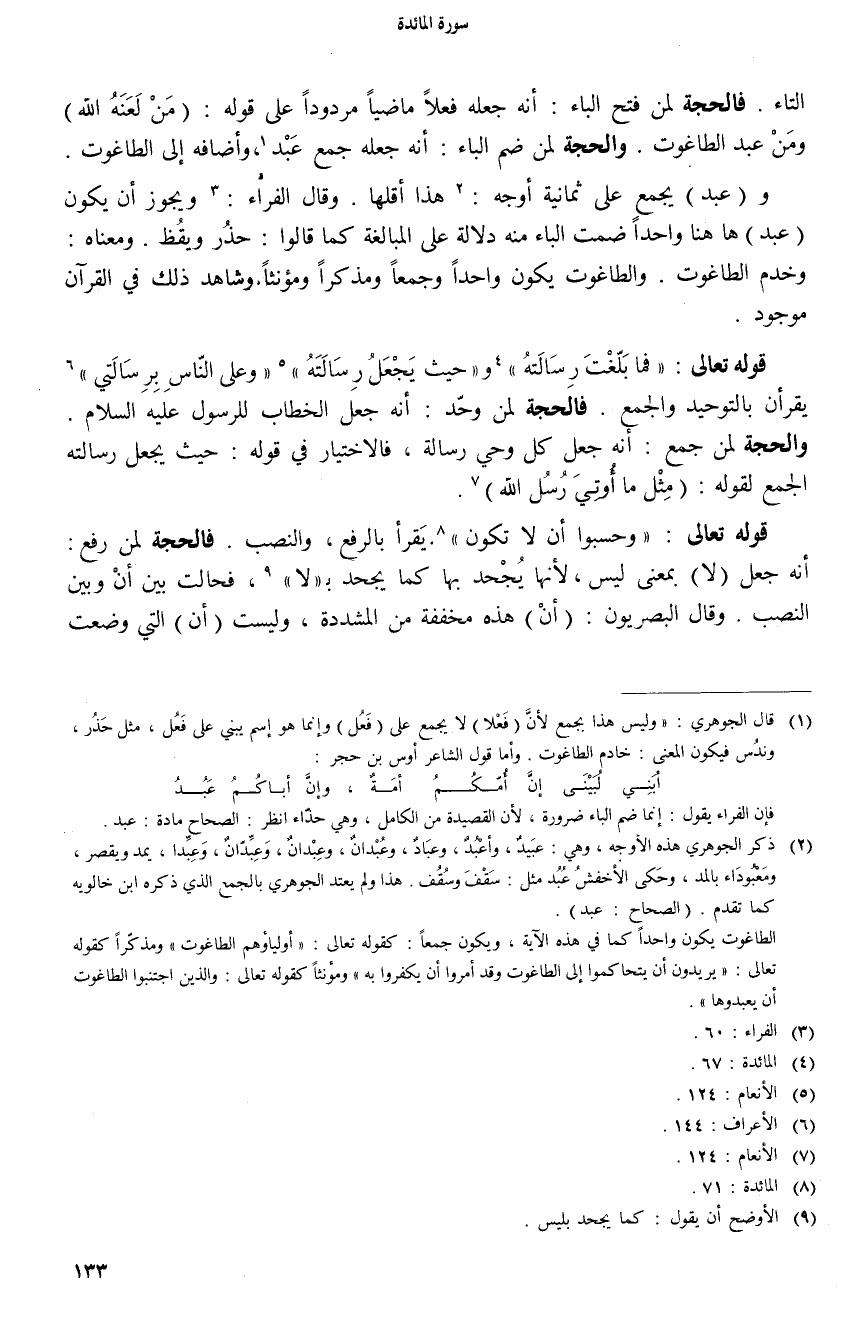 سورة المائدة
التاء . فالحجة لمن فتح الباء : أنه جعله فعلاً ماضياً مردوداً على قوله : ( مَنْ لَعَنَهُ الله )
ومَنْ عبد الطاغوت . والحجة لمن ضم الباء : أنه جعله جمع عَبْد ١، وأضافه إلى الطاغوت .
و ( عبد ) يجمع على ثمانية أوجه : ٢ هذا أقلها . وقال الفراء : ٣ ويجوز أن يكون
( عبد ) ها هنا واحداً ضمت الباء منه دلالة على المبالغة كما قالوا : حذُر ويقُظ . ومعناه :
وخدم الطاغوت . والطاغوت يكون واحداً وجمعاً ومذكراً ومؤنثاً. وشاهد ذلك في القرآن
موجود .
قوله تعالى : « فما بَلّغْتَ رِسَالَتهُ » ٤ و« حيث يَجْعَلُ رِسَالَتَهُ » ٥ « وعلى النّاس بِرِسَالَتي » ٦
يقرأن بالتوحيد والجمع . فالحجة لمن وحّد : أنه جعل الخطاب للرسول عليه السلام .
والحجة لمن جمع : أنه جعل كل وحي رسالة ، فالاختيار في قوله : حيث يجعل رسالته
الجمع لقوله : ( مِثْل ما أُوتِيَ رُسُل الله ) ٧ .
قوله تعالى : « وحسبوا أن لا تكون » ٨. يَقرأ بالرفع ، والنصب . فالحجة لمن رفع :
أنه جعل (لا) بمعنى ليس ، لأنها يُجْحد بها كما يجحد بـ«لا» ٩ ، فحالت بين أنْ وبين
النصب . وقال البصريون : ( أنْ ) هذه مخففة من المشددة ، وليست ( أن ) التي وضعت
(١) قال الجوهري : « وليس هذا بجمع لأنَّ ( فَعْلا ) لا يجمع على ( فَعُل ) وإنما هو إسم يبني على فَعُل ، مثل حَذُر ،
وندُس فيكون المعنى : خادم الطاغوت . وأما قول الشاعر أوس بن حجر :
أبَنِـي لُبَيْنَـى إنَّ أُمّـكُـمُ أمَـةٌ ، وإنَّ أبـاكُـمُ عَبُـدُ
فإن الفراء يقول : إنما ضم الباء ضرورة ، لأن القصيدة من الكامل ، وهي حذّاء انظر : الصحاح مادة : عبد .
(٢) ذكر الجوهري هذه الأوجه ، وهي : عبَيدٌ ، وأعْبُدٌ ، وعبَادٌ ، وعُبْدانٌ ، وعِبْدانٌ ، وَعِبِّدّانٌ ، وَعِبِّدا ، يمد ويقصر ،
ومَعْبُودَاء بالمد ، وحَكى الأخفشُ عُبُد مثل : سَقْف وسُقُف . هذا ولم يعتد الجوهري بالجمع الذي ذكره ابن خالويه
كما تقدم . ( الصحاح : عبد ) .
الطاغوت يكون واحداً كما في هذه الآية ، ويكون جمعاً : كقوله تعالى : « أولياؤهم الطاغوت » ومذكّراً كقوله
تعالى : « يريدون أن يتحاكموا إلى الطاغوت وقد أمروا أن يكفروا به » ومؤنثاً كقوله تعالى : والذين اجتنبوا الطاغوت
أن يعبدوها » .
(٣) الفراء : ٦٠ .
(٤) المائدة : ٦٧ .
(٥) الأنعام : ١٢٤ .
(٦) الأعراف : ١٤٤ .
(٧) الأنعام : ١٢٤ .
(٨) المائدة : ٧١ .
(٩) الأوضح أن يقول : كما يجحد بليس .
١٣٣